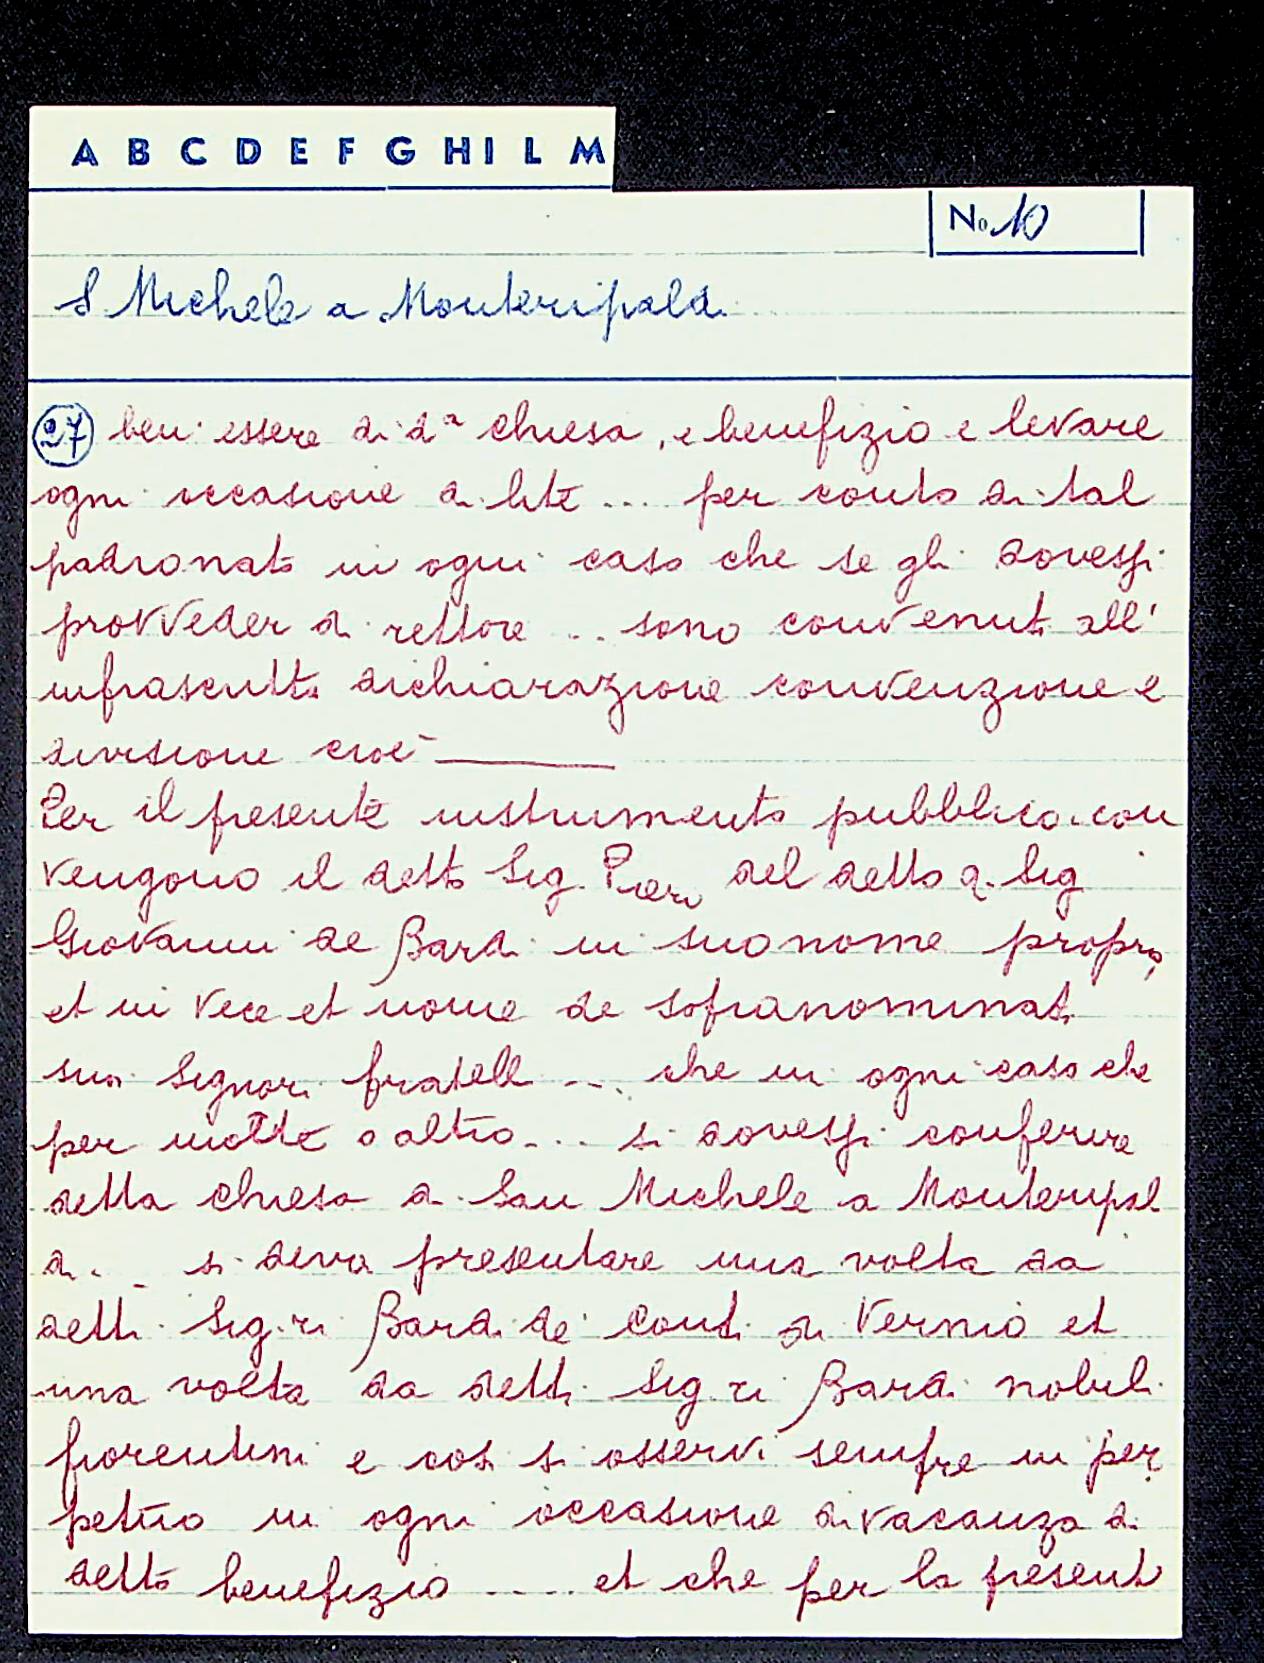 A B C D E F G H I L M
No 10
S Michele a Monteripaldi
27 ben essere di dª chiesa, e benefizio e levare
ogni occasione di lite ... per conto di tal
padronato in ogni caso che se gli dovessi
provveder di rettore ... sono convenuti all'
infrascritta dichiarazione convenzione e
divisione cioè
Per il presente instrumento pubblico con
vengono il detto Sig. Piero del detto q. Sig
Giovanni de Bardi in suo nome proprio
et in vece et nome de sopranominati
suoi Signori fratelli ... che in ogni caso che
per morte o altro ... si dovessi conferire
detta chiesa di San Michele a Monteripal
di ... si deva presentare una volta da
detti Sig.ri Bardi de' Conti di Vernio et
una volta da detti Sig.ri Bardi nobili
fiorentini e così si osservi sempre in per
petuo in ogni occasione di vacanza di
detto benefizio .... et che per la present